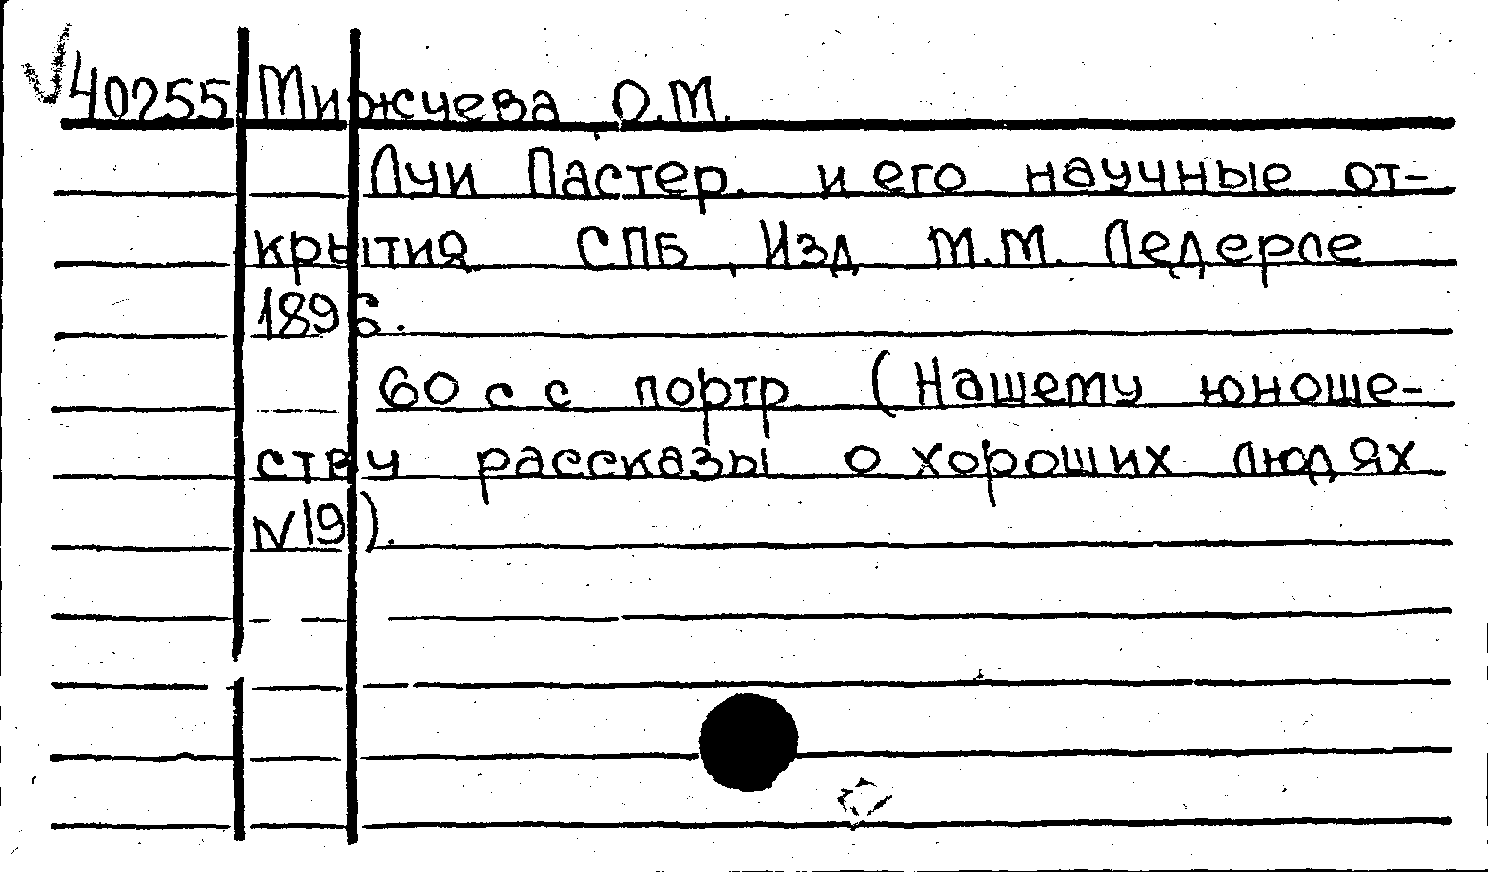 40255 Мижуева О.М.
Луи Пастер. и его научные от-
крытия СПБ, Изд М.М. Ледерле
1896.
60 с с портр (Нашему юноше-
ству рассказы о хороших людях
N19).